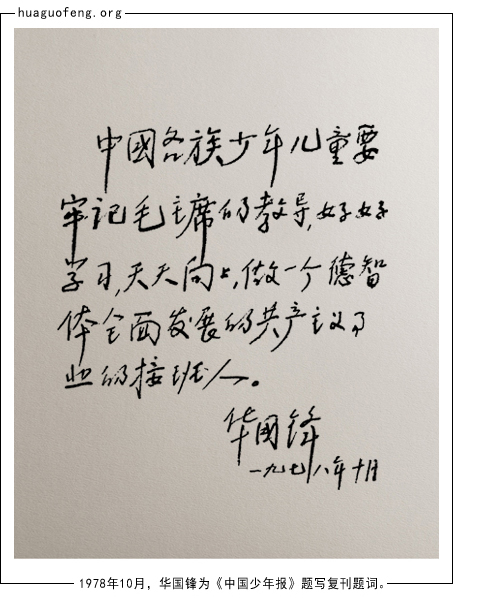 huaguofeng.org
中國各族少年儿童要
牢记毛主席的教导,好好
学习,天天向上,做一个德智
体全面发展的共产主义事
业的接班人。
华国锋
一九七八年十月
1978年10月，华国锋为《中国少年报》题写复刊题词。